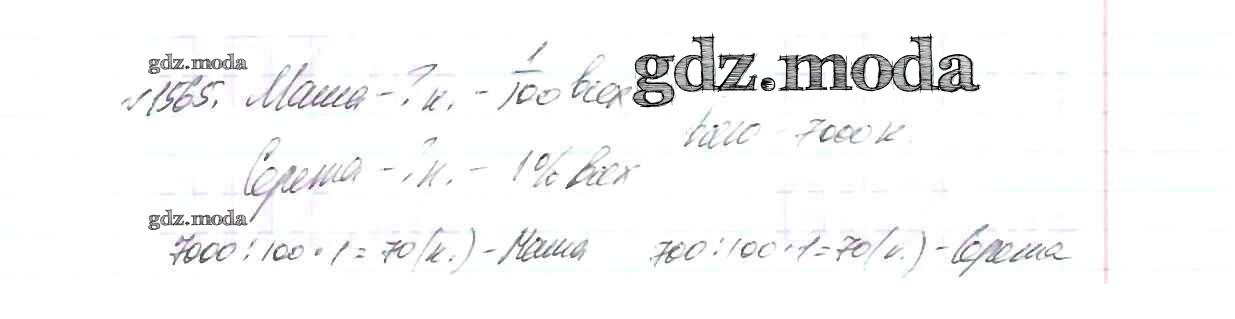 gdz.moda
gdz.moda
№1565. Маша - ? к. - 1/100 всех
Всего - 7000 к.
Сережа - ? к. - 1% всех
gdz.moda
7000 : 100 · 1 = 70 (к.) - Маша 700 : 100 · 1 = 70 (к.) - Сережа